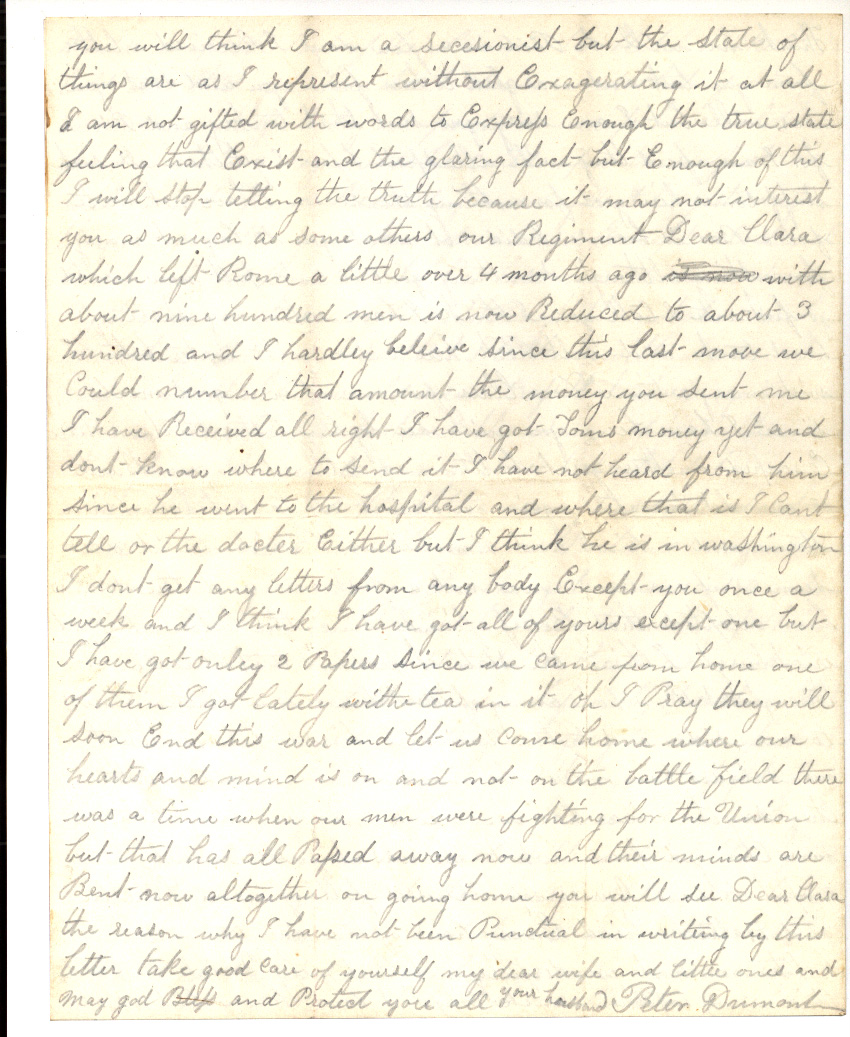 you will think I am a secesionist but the state of
things are as I represent without Exagerating it at all
I am not gifted with words to Express Enough the true state
feeling that Exist and the glaring fact but Enough of this
I will stop telling the truth because it may not interest
you as much as some others our Regiment Dear Clara
which left Rome a little over 4 months ago is now with
about nine hundred men is now Reduced to about 3
hundred and I hardley beleive since this last move we
Could number that amount the money you sent me
I have Received all right I have got Toms money yet and
dont know where to send it I have not heard from him
since he went to the hospital and where that is I Cant
tell or the docter Either but I think he is in washington
I dont get any letters from any body Except you once a
week and I think I have got all of yours except one but
I have got onley 2 Papers since we came from home one
of them I got lately withe tea in it oh I Pray they will
soon End this war and let us come home where our
hearts and mind is on and not on the battle field there
was a time when our men were fighting for the Union
but that has all Passed away now and their minds are
Bent now altogether on going home you will see Dear Clara
the reason why I have not been Punctual in writing by this
letter take good care of yourself my dear wife and little ones and
may god Bless and Protect you all your husband Peter Dumont